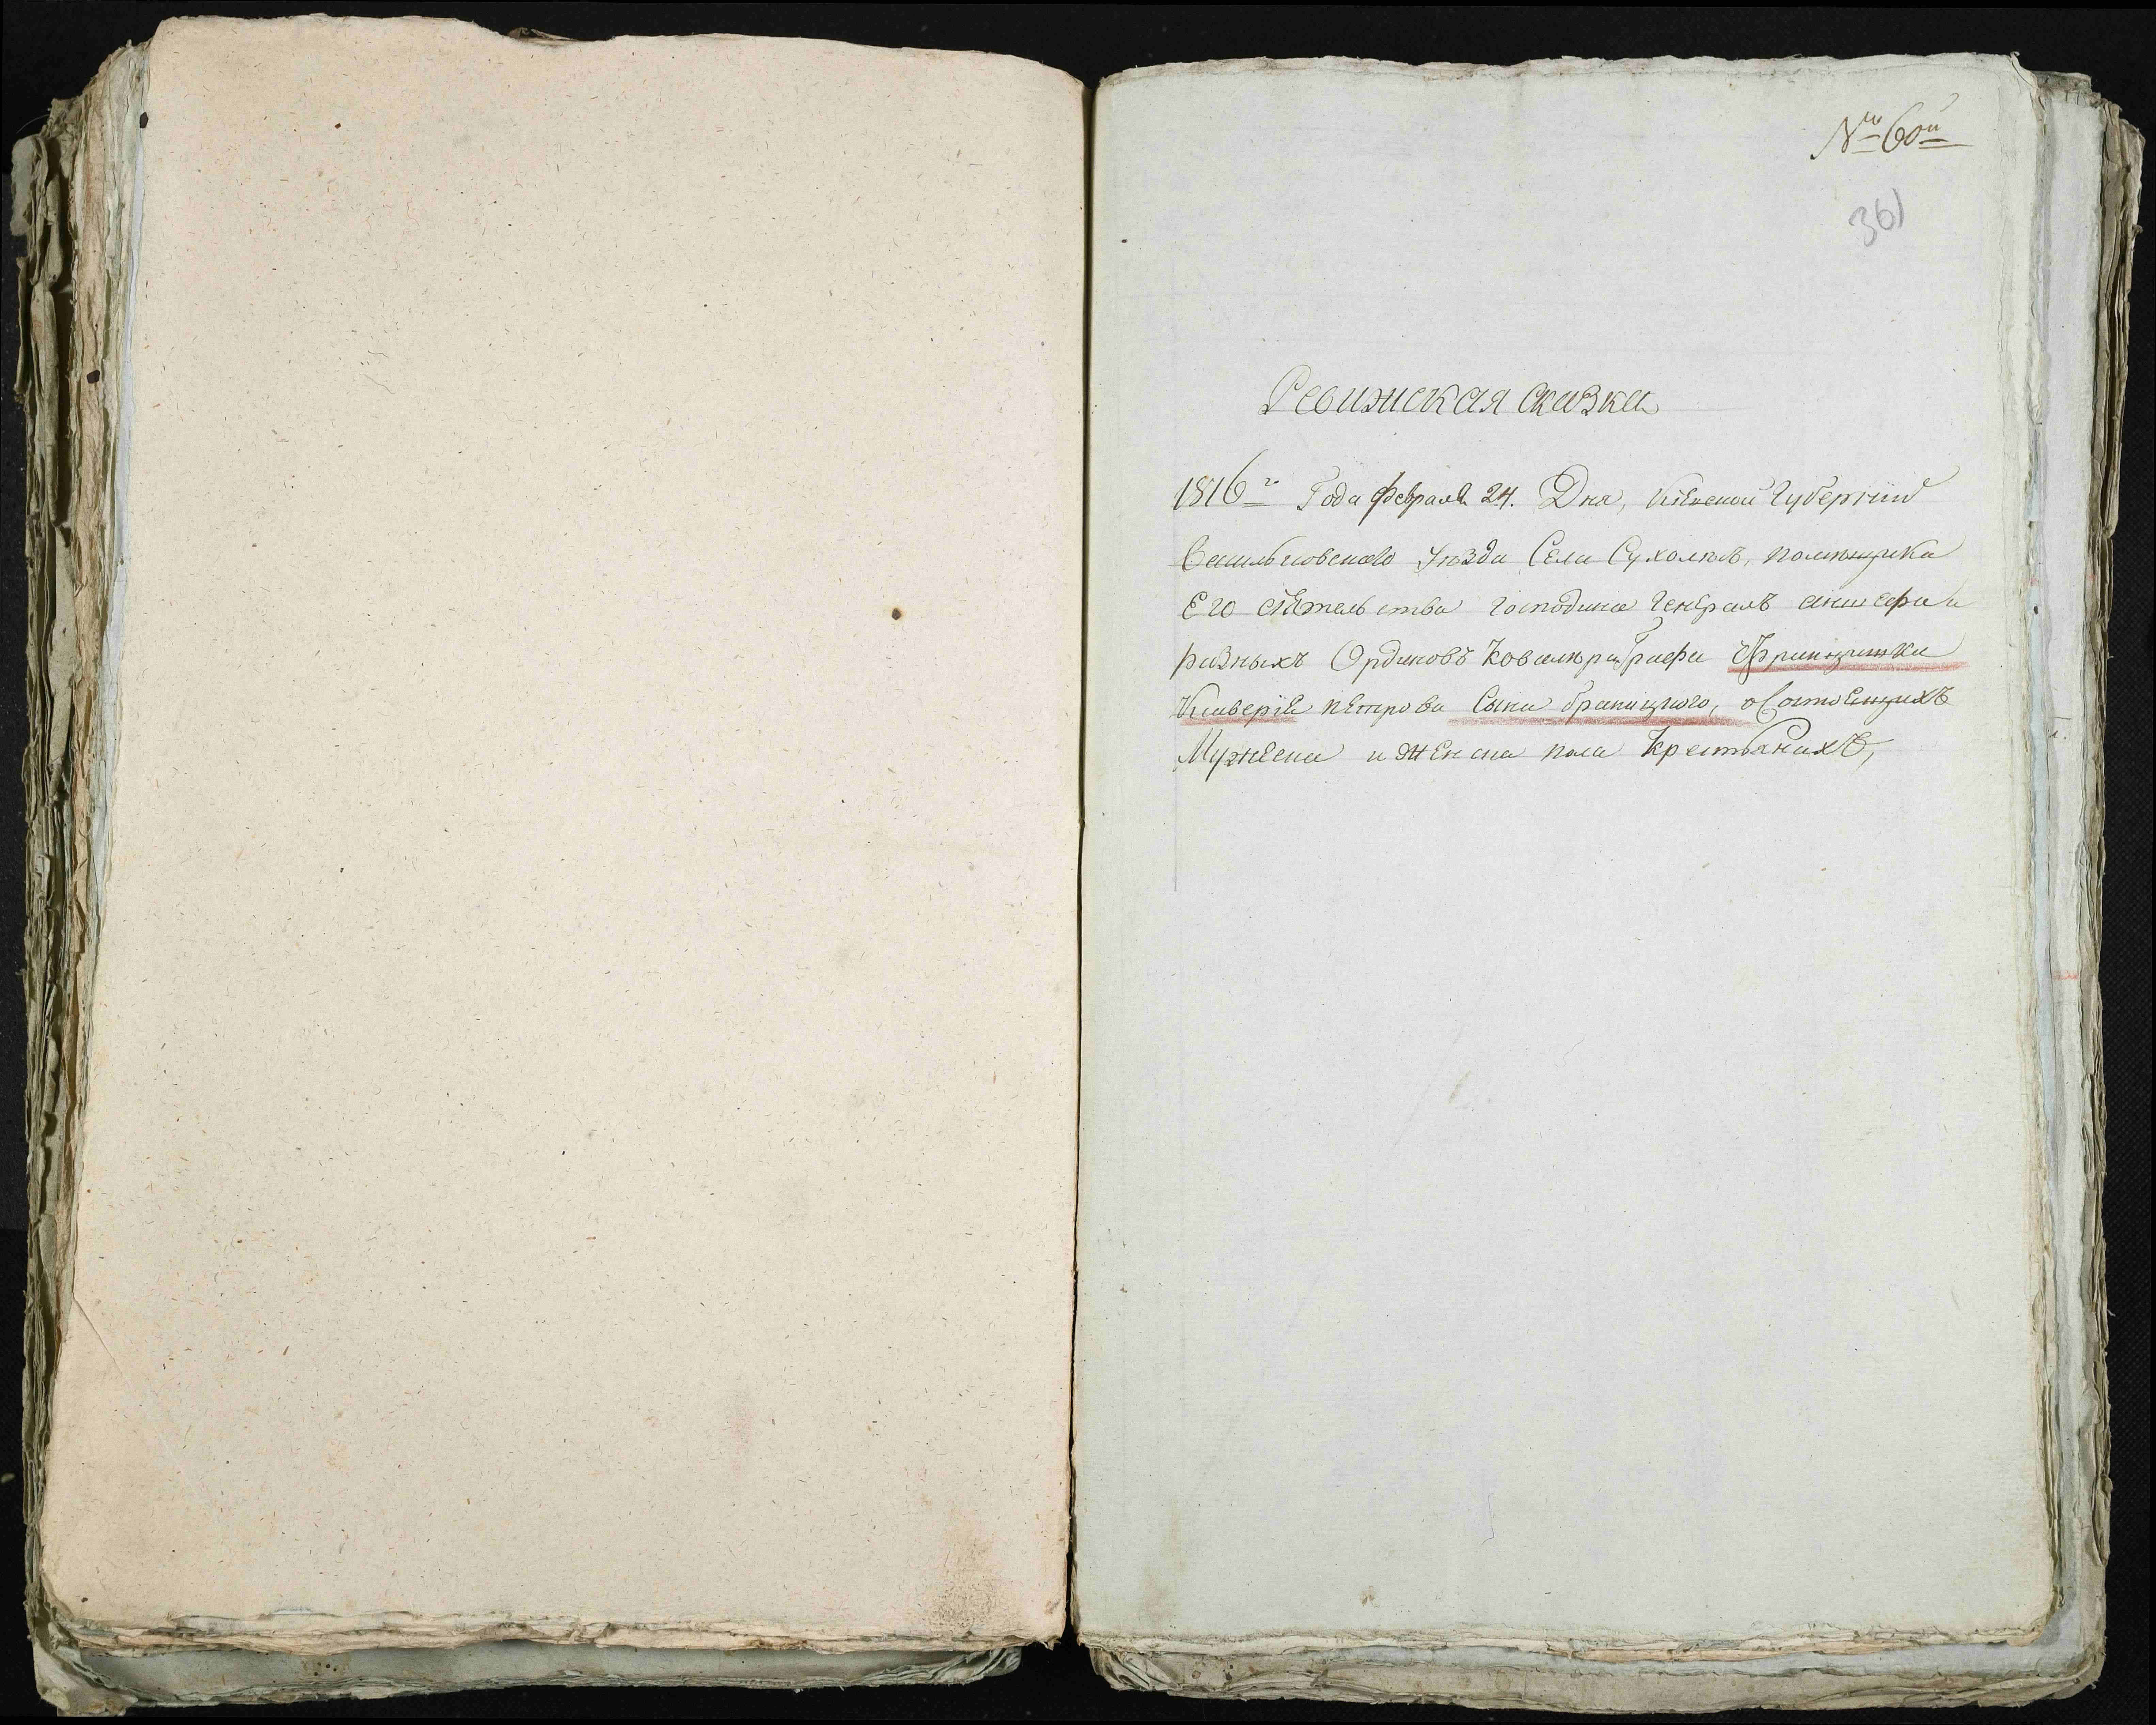 № 60й
361
Ревижская сказка
1816го Года февраля 24. Дня, Киевской Губернии
Васильковского Уезда Села Сухолесъ, помещика
Его сиятельства господина Генералъ аншефа и
разныхъ Орденовъ Ковалера Графа Францишка
Ксаверія петрова Сына браницкого, о Состоящихъ
Мужеска и женска пола Крестьянахъ,